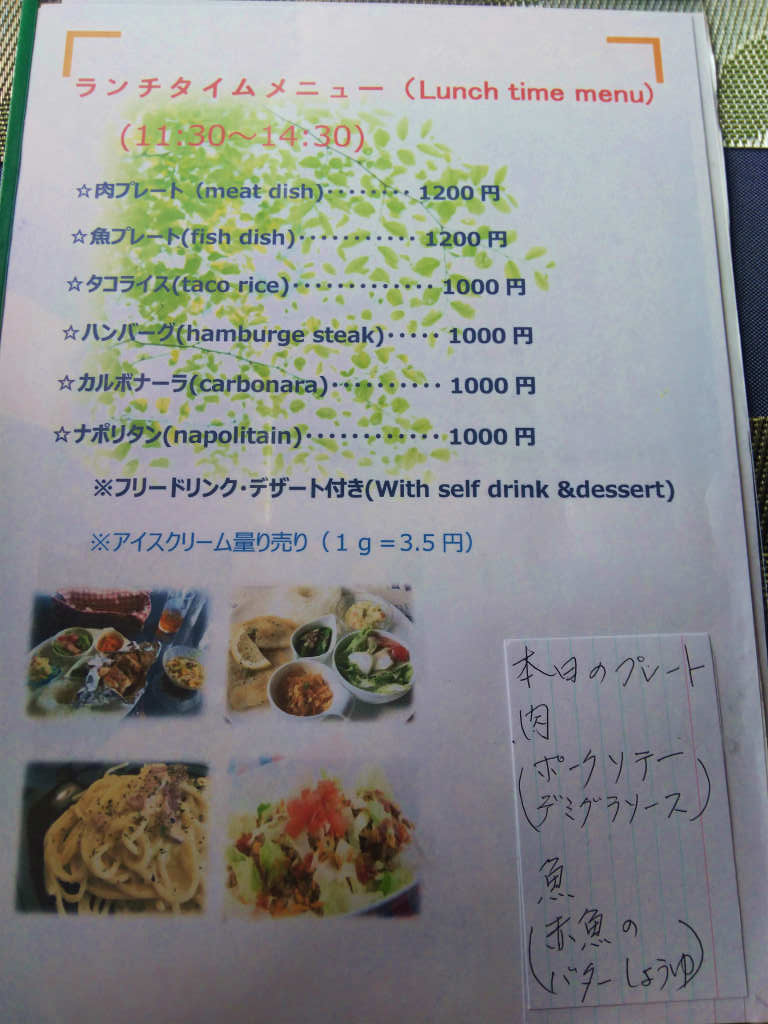 ランチタイムメニュー（Lunch time menu)
(11:30～14:30)
☆肉プレート（meat dish)‥‥‥‥ 1200 円
☆魚プレート(fish dish)‥‥‥‥‥‥ 1200 円
☆タコライス(taco rice)‥‥‥‥‥‥‥ 1000 円
☆ハンバーグ(hamburge steak)‥‥‥ 1000 円
☆カルボナーラ(carbonara)‥‥‥‥‥ 1000 円
☆ナポリタン(napolitain)‥‥‥‥‥‥ 1000 円
※フリードリンク・デザート付き(With self drink &dessert)
※アイスクリーム量り売り（１ｇ＝3.5 円）
本日のプレート
肉
(ポークソテー
デミグラソース)
魚
(赤魚の
バターしょうゆ)